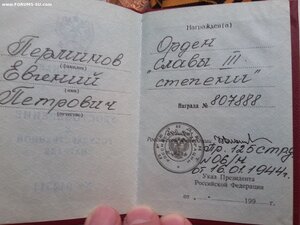 www.FORUMS-SU.com
Перминов
(фамилия)
Евгений
(имя)
Петрович
(отчество)
Награжден(а)
Орден
"Славы III
степени"
Награда № 807888
Пр. 125стрд
№ 06/н
от 16.01.1944г.
Указ Президента
Российской Федерации
от . 199 г.